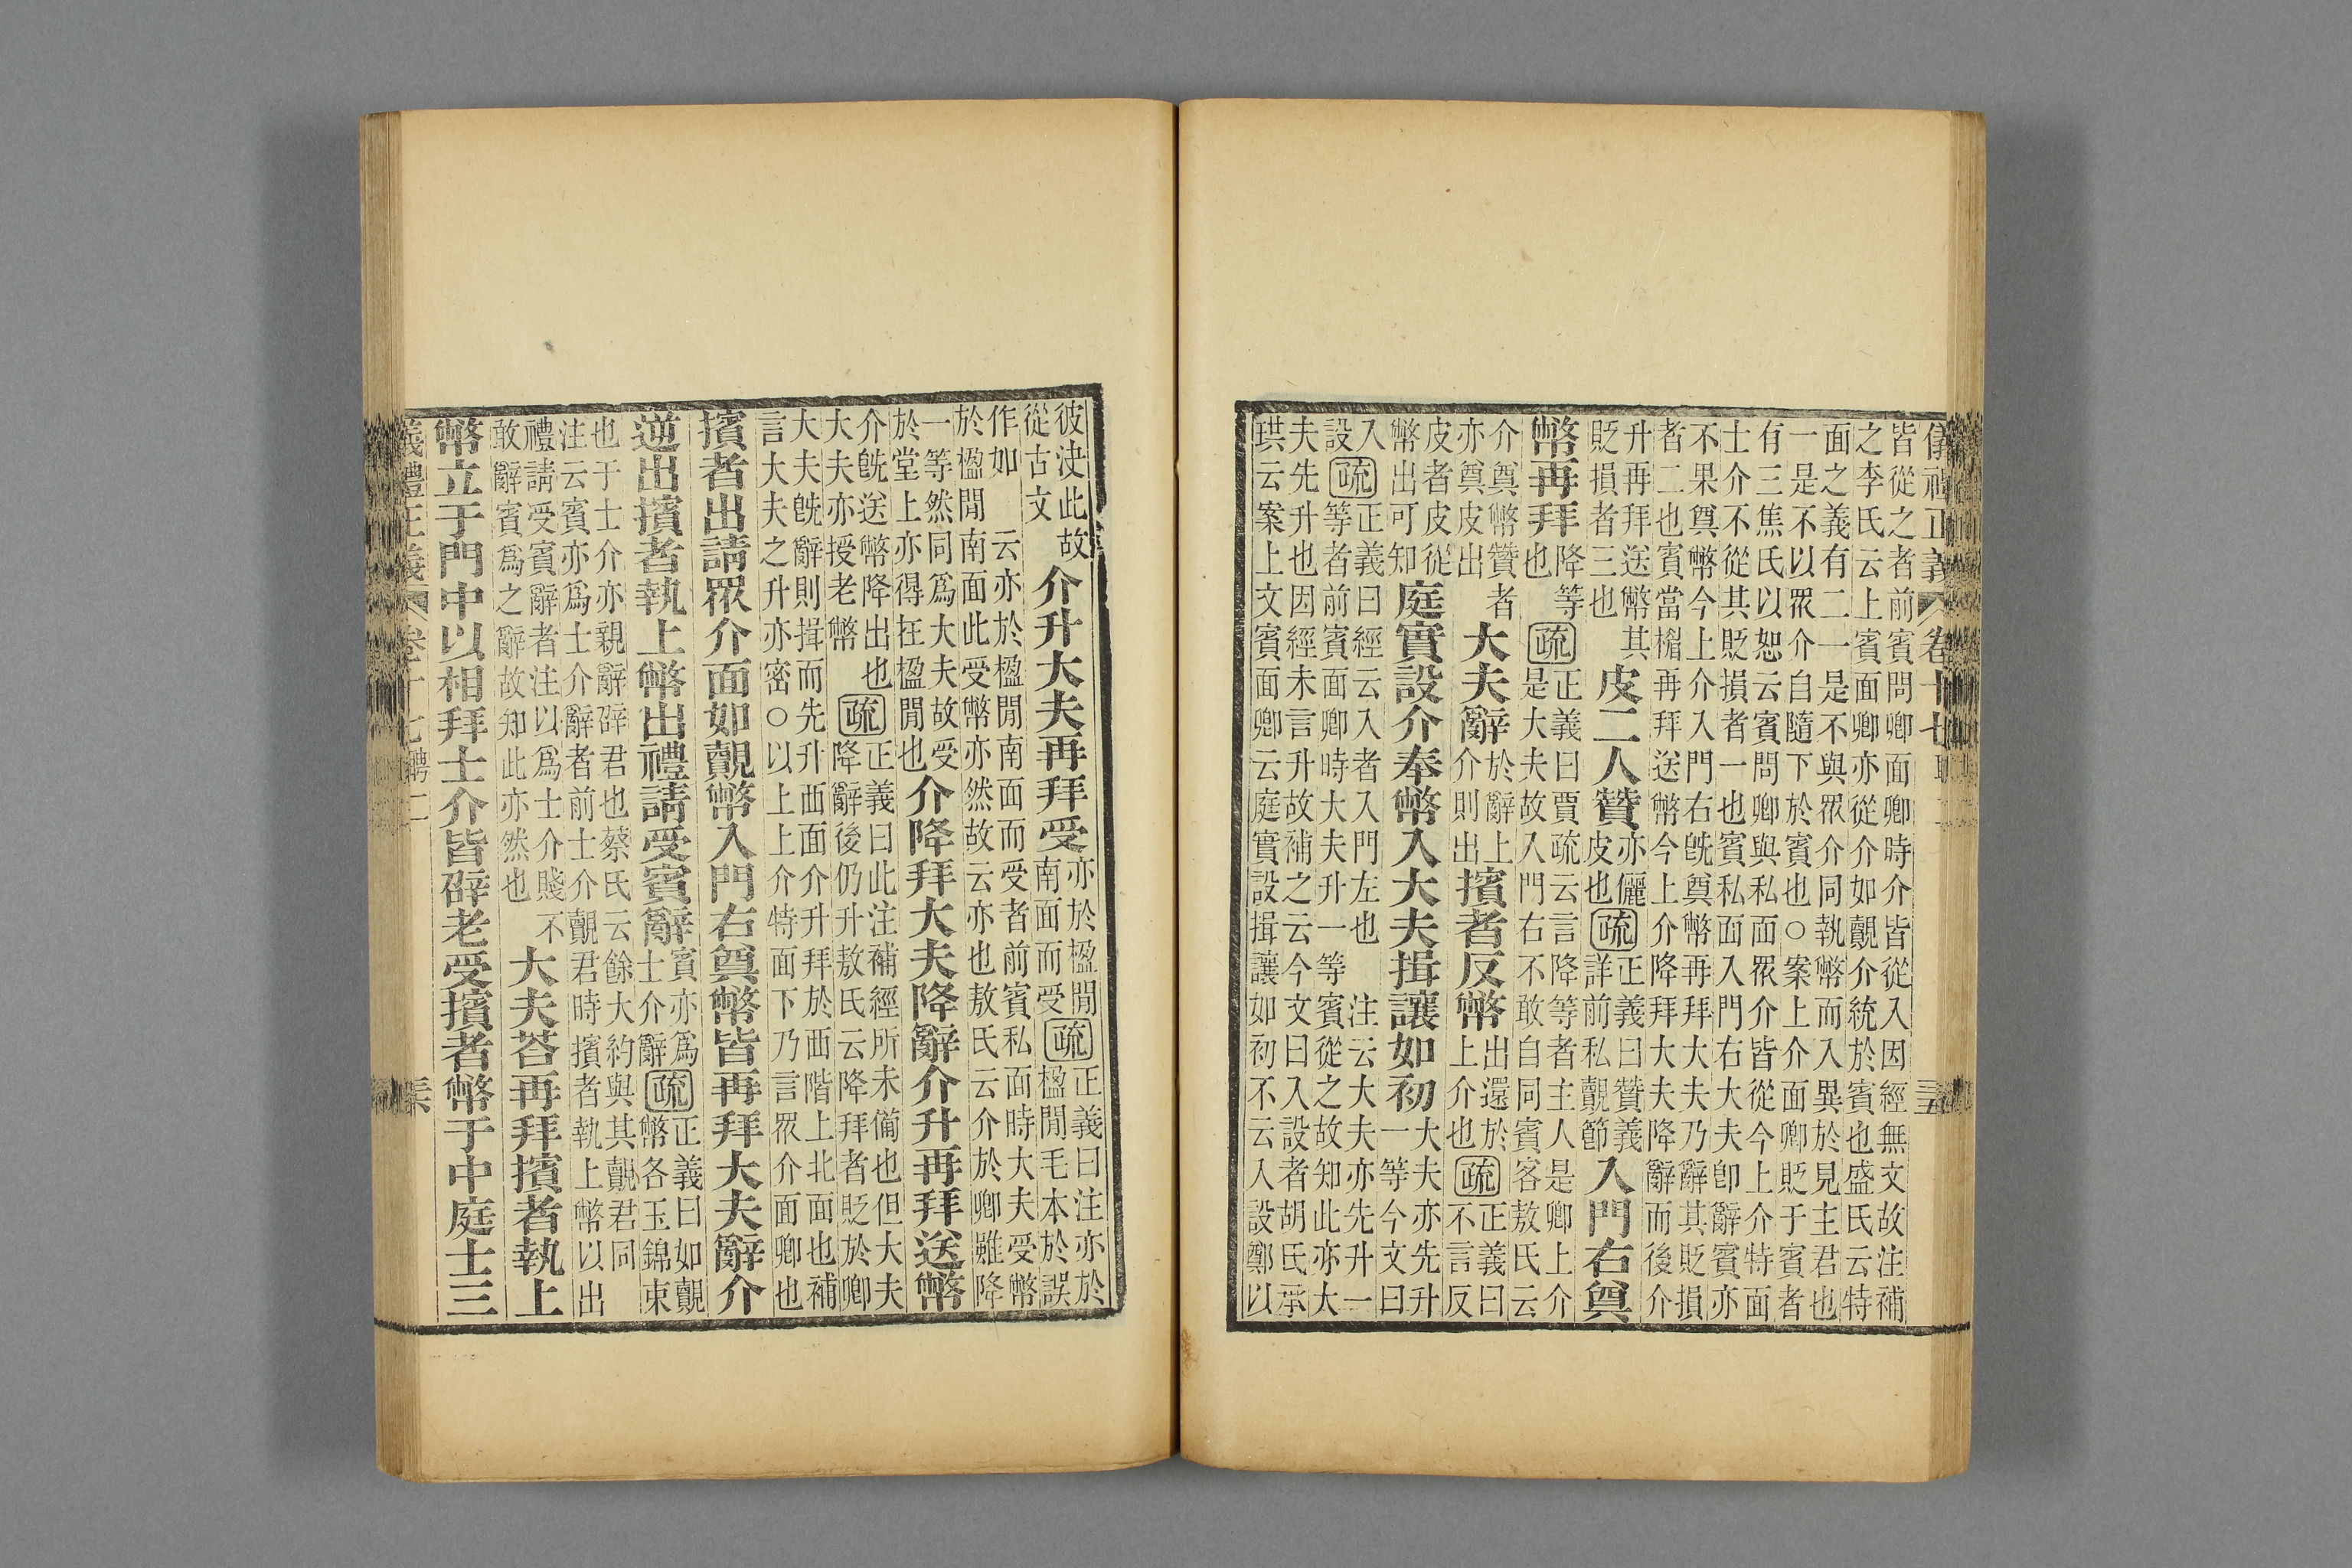 儀禮正義 卷十七 聘二 三五
皆從之者前賓問卿面卿時介皆從入因經無文故注補
之李氏云上賓面卿亦從介如覿介統於賓也盛氏云特
面之義有二一是不與眾介同執幣而入異於見主君也
一是不以眾介自隨下於賓也○案上介面卿貶于賓者
有三焦氏以恕云賓問卿與私面眾介皆從今上介特面
士介不從其貶損者一也賓私面入門右大夫卽辭賓亦
不果奠幣今上介入門右旣奠幣再拜大夫乃辭其貶損
者二也賓當楣再拜送幣今上介降拜大夫降辭而後介
升再拜送幣其
貶損者三也
皮二人贊
亦儷
皮也
疏
正義曰贊義
詳前私覿節
入門右奠
幣再拜
降等
也
疏
正義曰賈疏云言降等者主人是卿上介
是大夫故入門右不敢自同賓客敖氏云
介奠幣贊者
亦奠皮出
大夫辭
於辭上
介則出
擯者反幣
出還於
上介也
疏
正義曰
不言反
皮者皮從
幣出可知
庭實設介奉幣入大夫揖讓如初
大夫亦先升
一等今文曰
入
設
疏
正義曰經云入者入門左也 注云大夫亦先升一
等者前賓面卿時大夫升一等賓從之故知此亦大
夫先升也因經未言升故補之云今文曰入設者胡氏承
珙云案上文賓面卿云庭實設揖讓如初不云入設鄭以
彼決此故
從古文
介升大夫再拜受
亦於楹閒
南面而受
疏
正義曰注亦於
楹閒毛本於誤
作如 云亦於楹閒南面而受者前賓私面時大夫受幣
於楹閒南面此受幣亦然故云亦也敖氏云介於卿雖降
一等然同爲大夫故受
於堂上亦得在楹閒也
介降拜大夫降辭介升再拜送幣
介旣送幣降出也
大夫亦授老幣
疏
正義曰此注補經所未備也但大夫
降辭後仍升敖氏云降拜者貶於卿
大夫旣辭則揖而先升西面介升拜於西階上北面也補
言大夫之升亦密○以上上介特面下乃言眾介面卿也
擯者出請眾介面如覿幣入門右奠幣皆再拜大夫辭介
逆出擯者執上幣出禮請受賓辭
賓亦爲
士介辭
疏
正義曰如覿
幣各玉錦束
也于士介亦親辭辟君也蔡氏云餘大約與其覿君同
注云賓亦爲士介辭者前士介覿君時擯者執上幣以出
禮請受賓辭者注以爲士介賤不
敢辭賓爲之辭故知此亦然也
大夫荅再拜擯者執上
幣立于門中以相拜士介皆辟老受擯者幣于中庭士三
義禮正義 卷十七 聘二